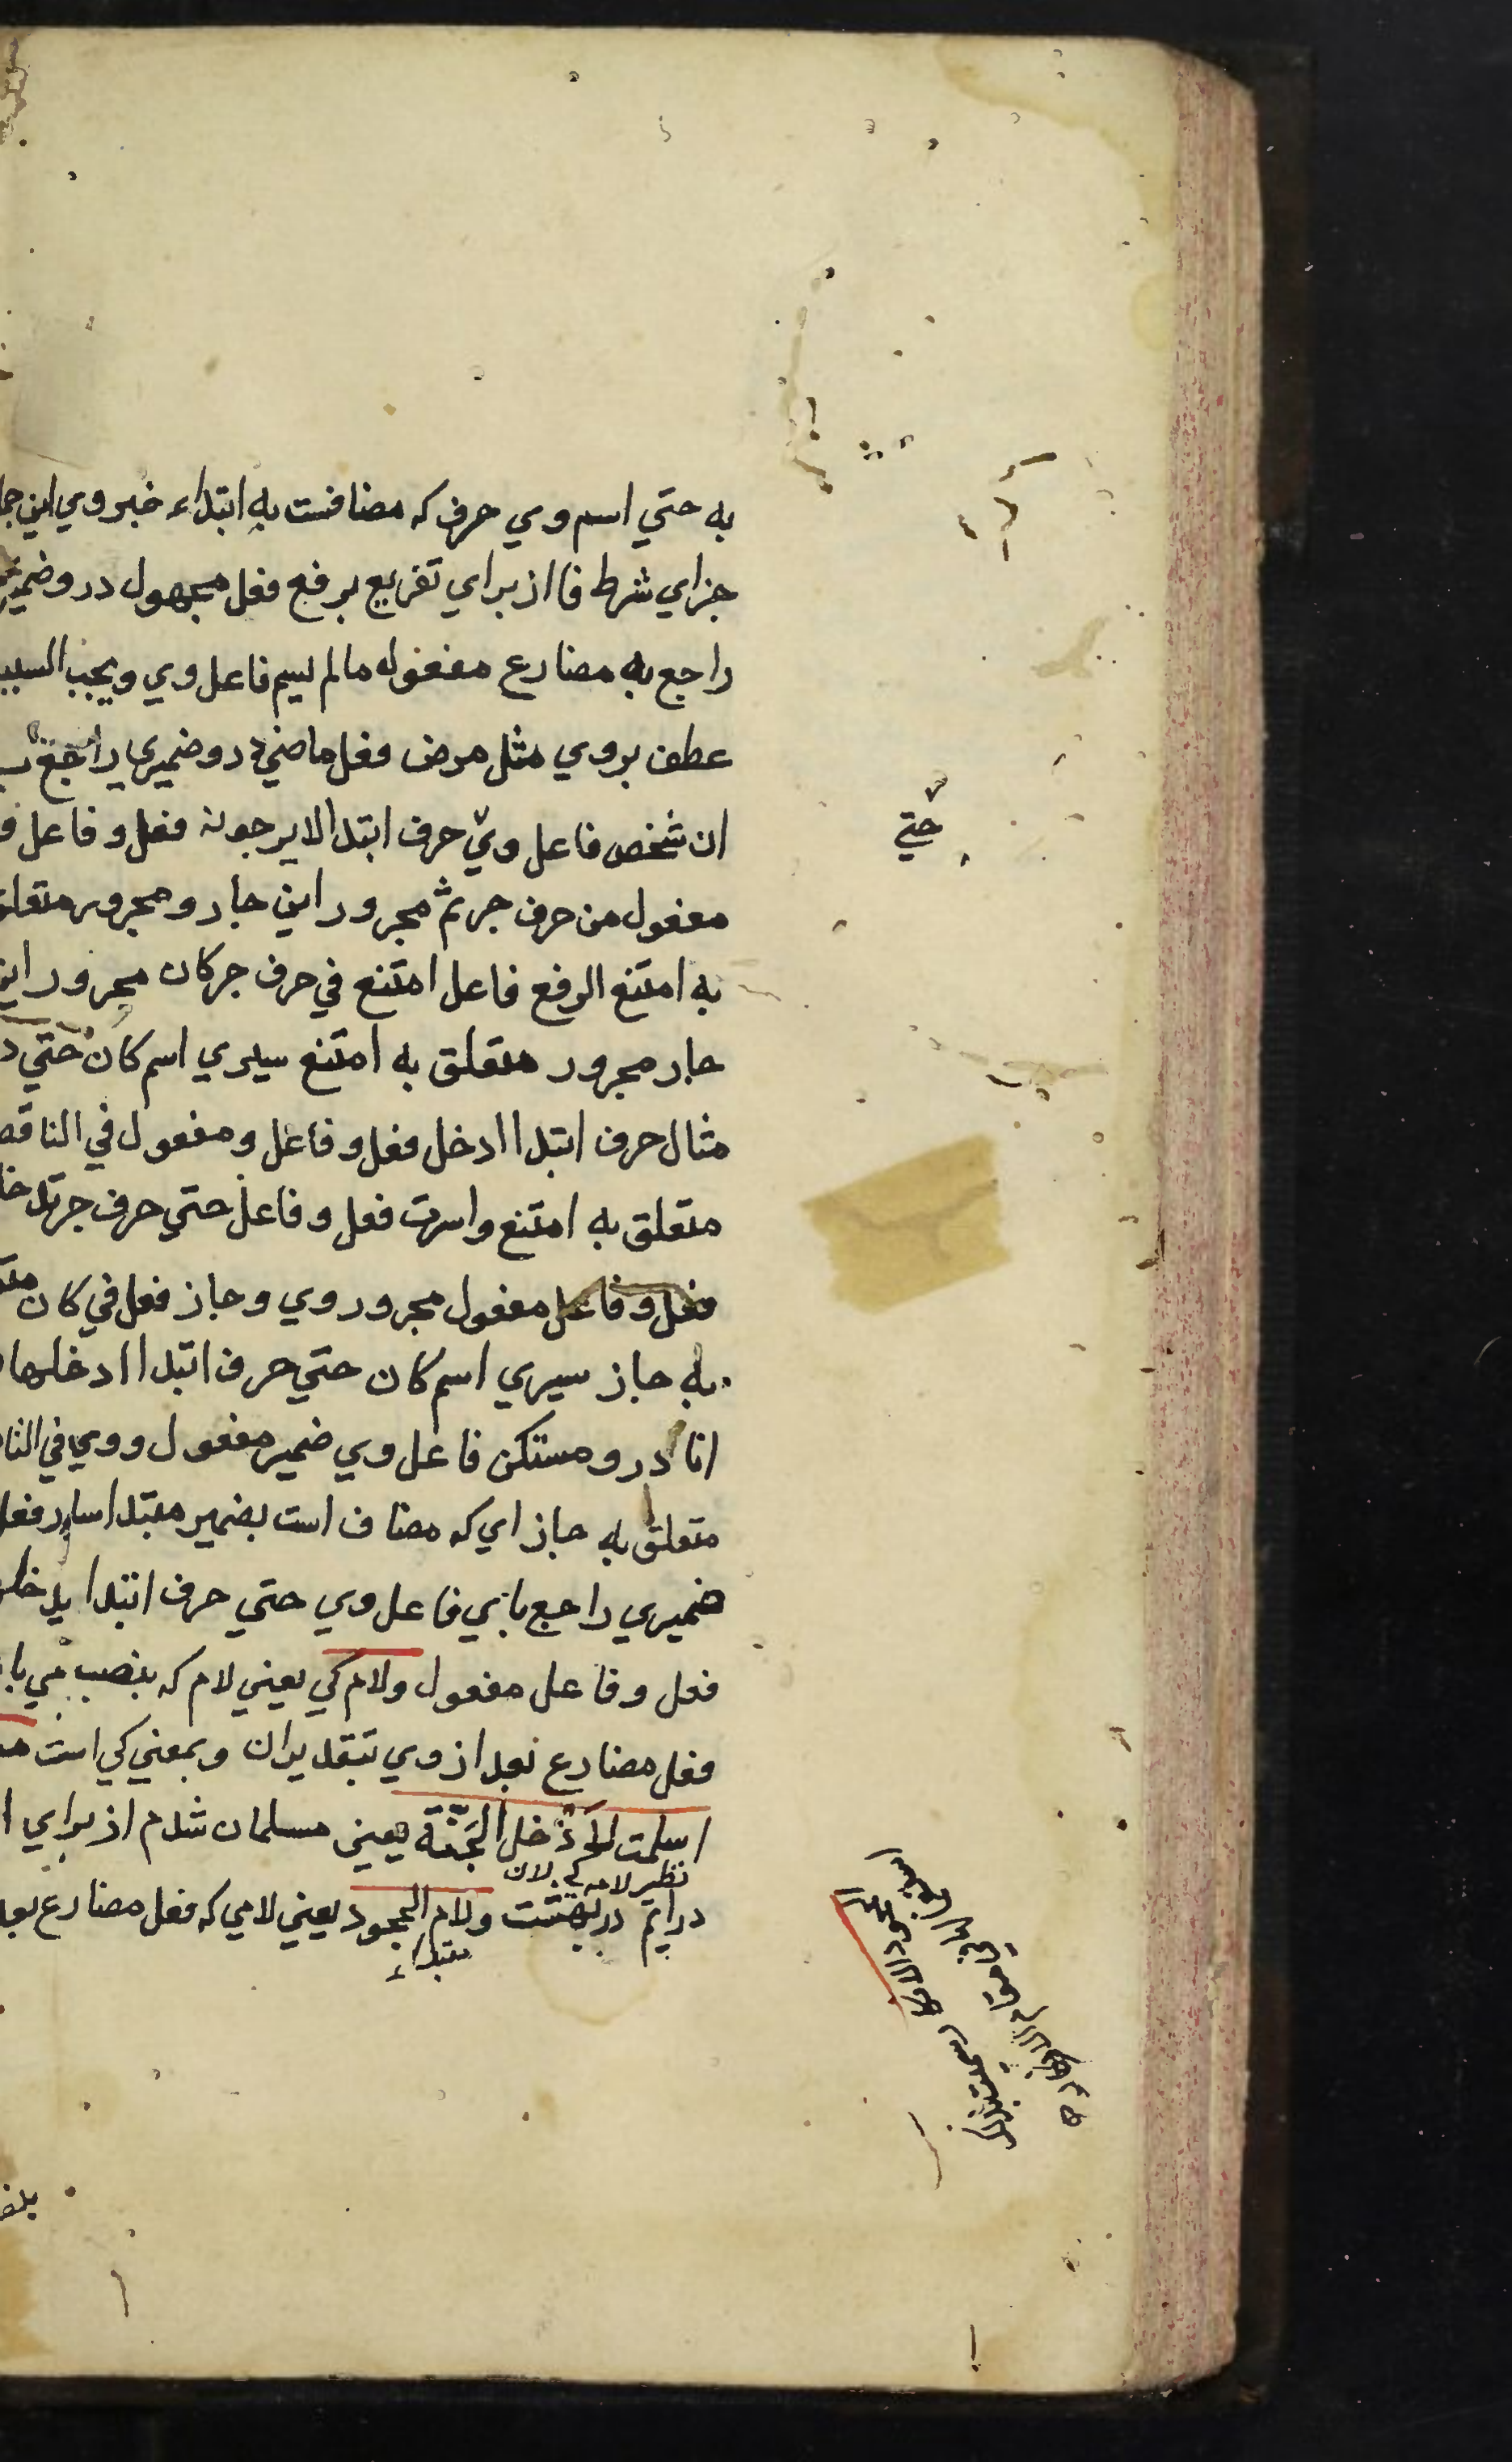 به حتي اسم وي حرف كه مضافست به ابتداء خبر وي اين
جزاي شرط فا از براي تفريع برفع فعل مجهول درو ضمير
راجع به مضارع مفعول ما لم يسم فاعل وي ويجب السبب
عطف بر وي مثل مرض فعل ماضي درو ضميري راجع ب
ان شخص فاعل وي حرف ابتدا لا يرجونه فعل و فاعل و
مفعول من حرف جر ثم مجرور اين جار و مجرور متعلق
به امتنع الرفع فاعل امتنع في حرف جر كان مجرور اين
جار مجرور متعلق به امتنع سيري اسم كان حتي
مثال حرف ابتدا ادخل فعل و فاعل و مفعول في الناقصه
متعلق به امتنع واسرت فعل و فاعل حتي حرف جر تدخل
فعل و فاعل مفعول مجرور وي و جاز فعل في كان
به جاز سيري اسم كان حتي حرف ابتدا ادخلها
انا درو مستكن فاعل وي ضمير مفعول وي في
متعلق به جاز اي كه مضاف است بضمير مبتدا سار فعل
ضميري راجع باي فاعل وي حتي حرف ابتدا يدخل
فعل و فاعل مفعول ولام كي يعني لام كه بنصب مي
فعل مضارع بعد از وي بتقدير ان و بمعني كي است
اسلمت لادخل الجنة يعني مسلمان شدم از براي
نظير لام كي لان
درايم در بهشت ولام الجحود يعني لامي كه فعل مضارع بعد
مبتداء
حتي